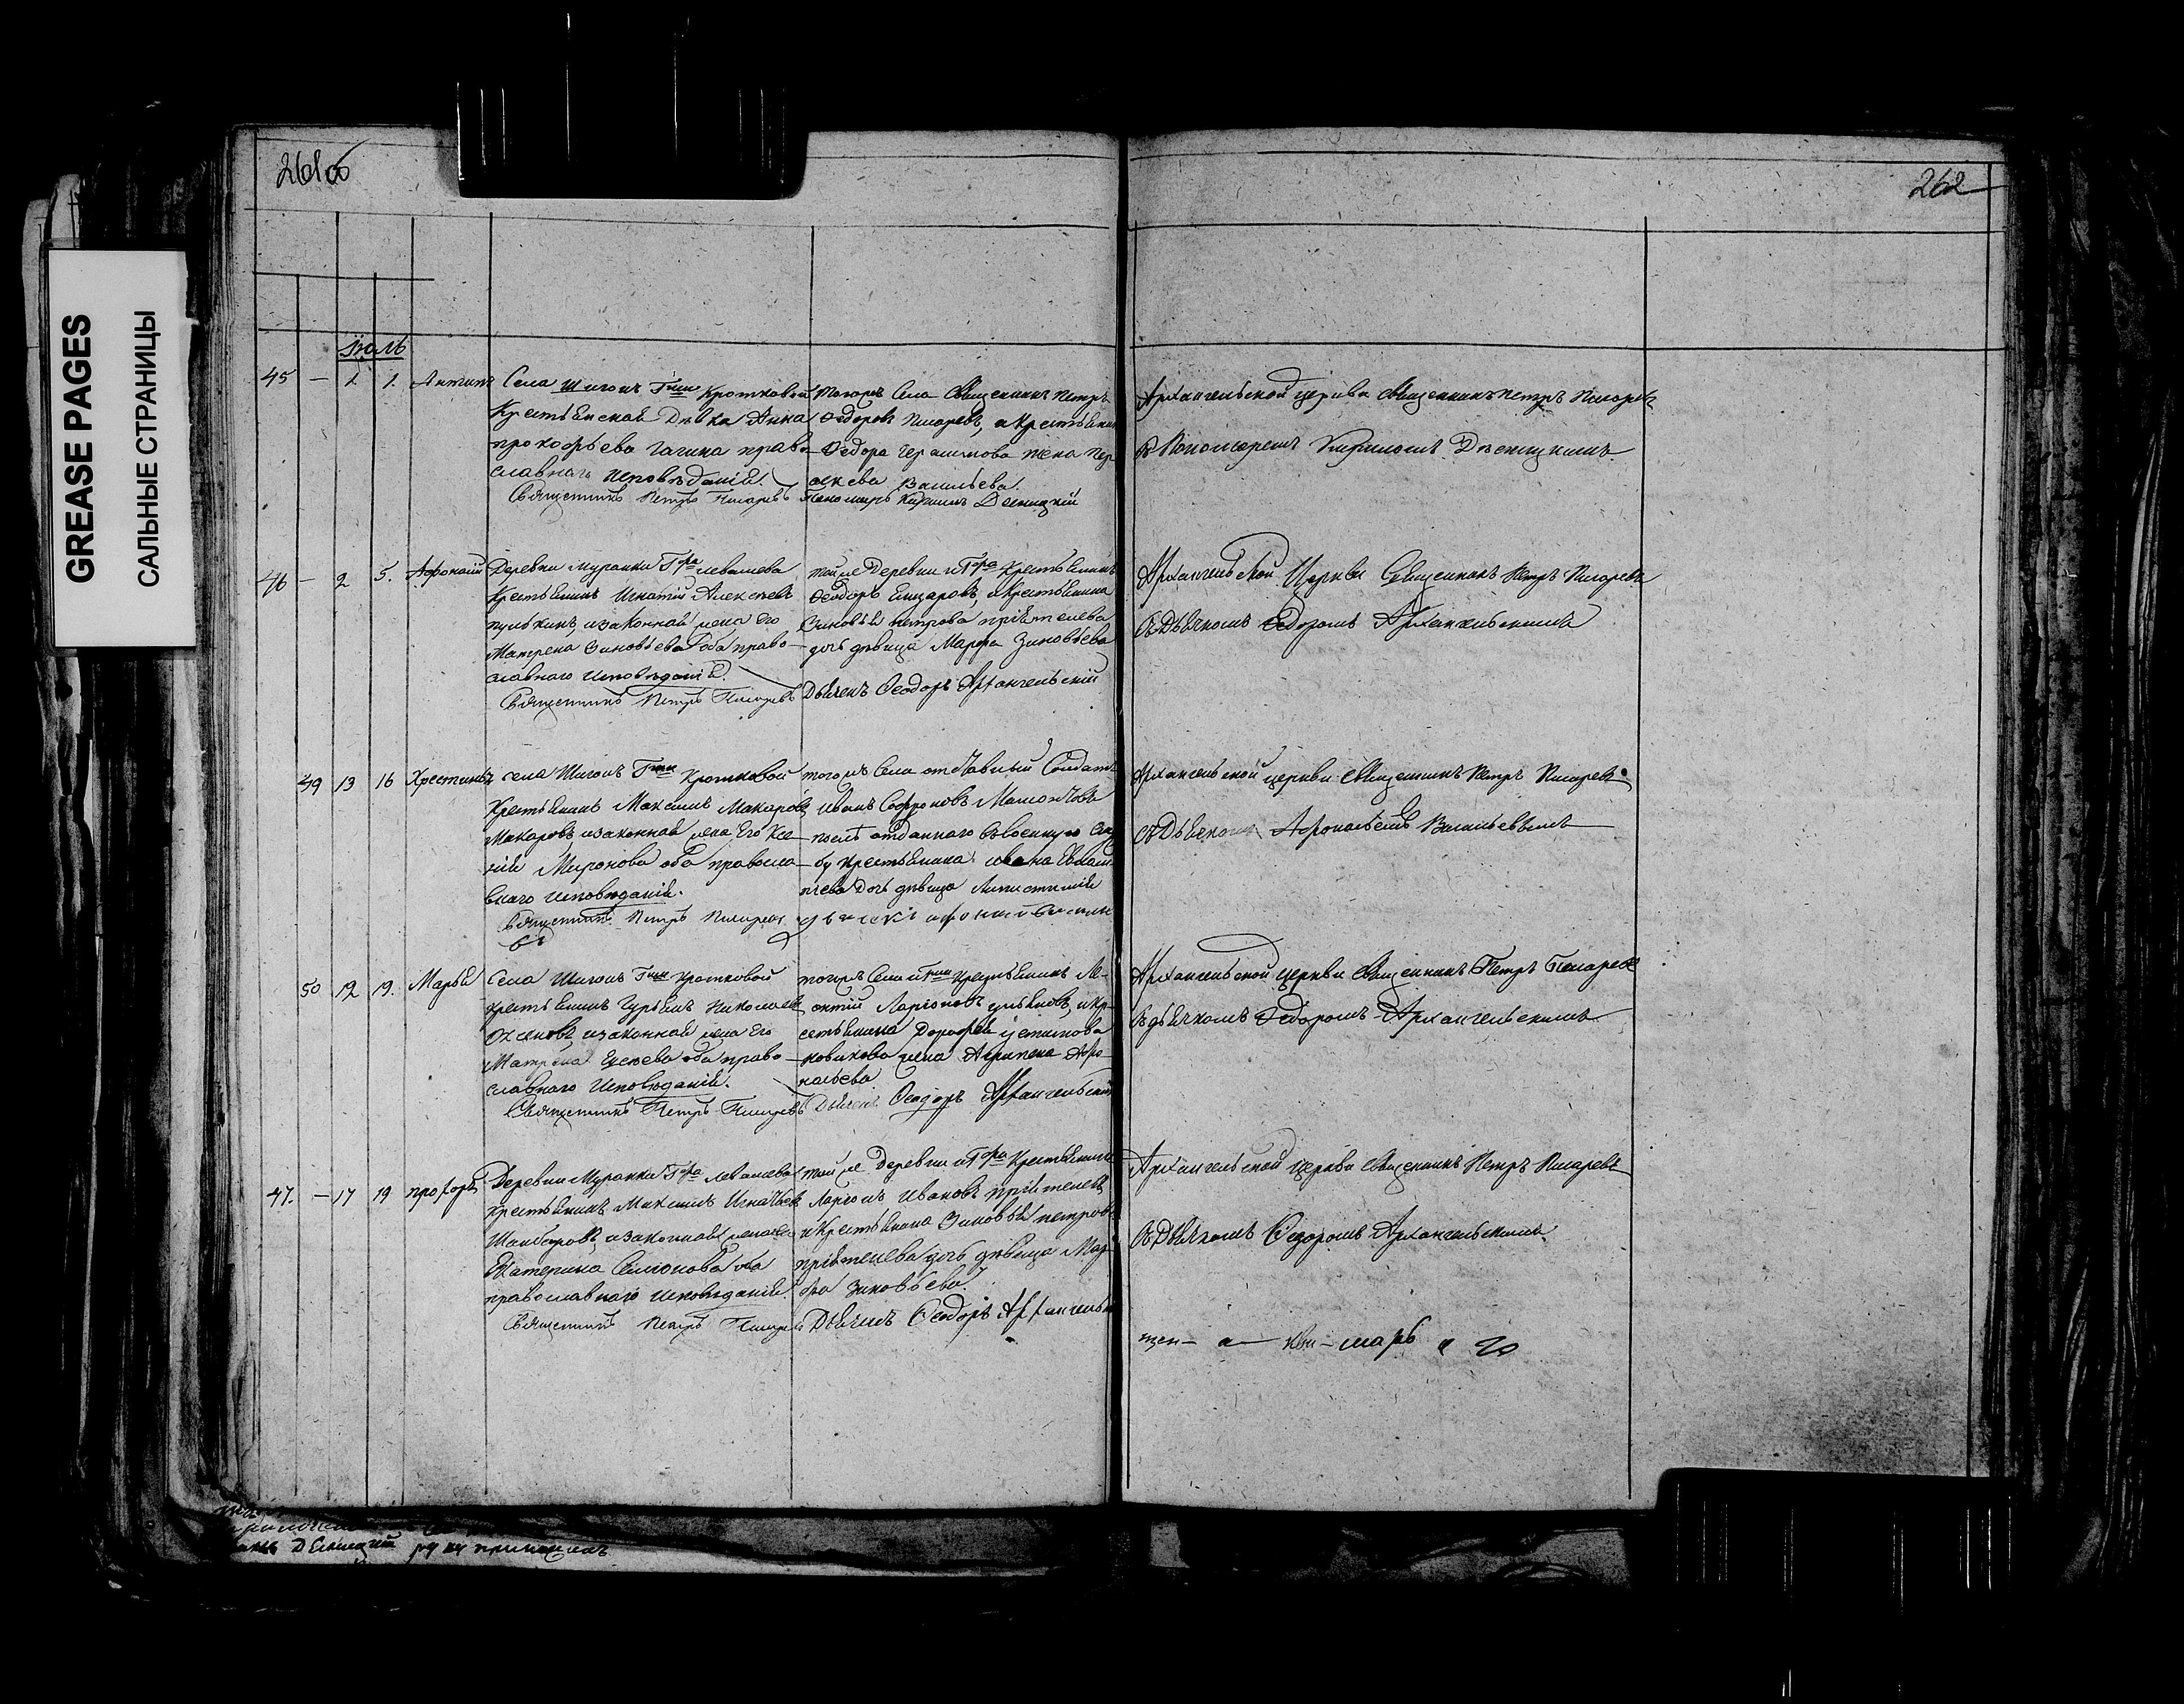 GREASE PAGES
САЛЬНЫЕ СТРАНИЦЫ
261об
262
Июль
45 — 1 1. Антипъ
Села Шигонъ Г-жи Кротковой
Крестьянская Дѣвка Анна
прокофьева Гагина право-
славнаго исповѣданія.
Священникъ Петръ Писаревъ
тогожъ Села Священникъ Петръ
Федоровъ Писаревъ, и крестьянина
Федора Герасимова жена Пер-
аскева Васильева.
Пономарь Кирилъ Десницкій
Архангельской церкви Священникъ Петръ Писаревъ
съ Пономаремъ Кириломъ Десницкимъ
46 — 2 5. Афонасій
Деревни муранки Г-на левашева
Крестьянинъ Игнатій Алексѣевъ
пулькинъ, изаконная жена Его
Матрена Зиновьева оба право-
славнаго исповѣданія.
Священникъ Петръ Писаревъ
тойже Деревни и Г-на Крестьянинъ
Феодоръ Елизаровъ, и крестьянина
Зиновья петрова пріятелева
дочь дѣвица Марфа Зиновьева
Дьячекъ Феодоръ Архангельскій
Архангельской Церкви Священникъ Петръ Писаревъ
съ Дьячкомъ Федоромъ Архангельскимъ
49 13 16 Христинья
села Шигонъ Г-жи Кротковой
Крестьянинъ Максимъ Макаровъ
Макаровъ, изаконная жена Его Ксе-
нія Миронова оба правосла-
внаго исповѣданія.
Священникъ Петръ Писаревъ
тогожъ Села отставный Солдатъ
Иванъ Софроновъ Мамонтовъ
послѣ отданнаго въ военную слу
бу крестьянина ивана
дочь дѣвица
въ
Архангельской церкви Священникъ Петръ Писаревъ
съ Дьячкомъ Афонасьемъ Васильевымъ
50 12 19. Марья
Села Шигонъ Г-жи Кротковой
крестьянинъ Гурьянъ Николаевъ
изаконная жена Его
Матрена оба право-
славнаго исповѣданія.
Священникъ Петръ Писаревъ
тогожъ Села и Г-жи Крестьянинъ Ле-
онтій Ларіоновъ ульяновъ, и кр-
естьянина Дорофея устинова
новикова жена Агрипена Афо-
насьева
Дьячекъ Феодоръ Архангельскій
Архангельской церкви Священникъ Петръ Писаревъ
съ дьячкомъ Федоромъ Архангельскимъ
47. — 17 19 прохоръ
Деревни Муранки Г-на левашева
крестьянинъ Максимъ Игнатьевъ
изаконная жена его
Катерина Семіонова оба
православнаго исповѣданія.
Священникъ Петръ Писаревъ
тойже Деревни и Г-на Крестьянинъ
Ларіонъ Ивановъ пріятелевъ
и Крестьянина Зиновья петрова
пріятелева дочь дѣвица Мар-
фа Зиновьева
Дьячекъ Феодоръ Архангельск
Архангельской церкви Священникъ Петръ Писаревъ
съ Дьячкомъ Федоромъ Архангельскимъ
щен — а —
Десницкій руку приложилъ